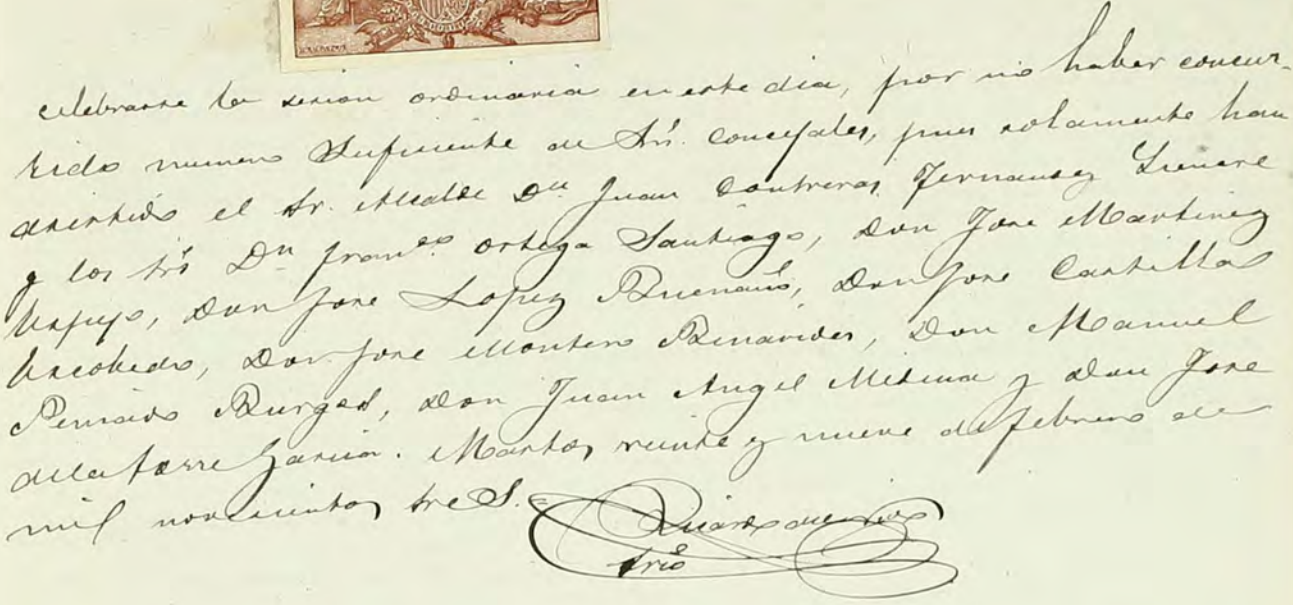 celebrarse la sesion ordinaria en este dia, por no haber concur-
rido numero suficiente de Srs. Concejales, pues solamente han
asistido el Sr. Alcalde Dn. Juan Contreras Fernandez Linare
y los Srs Dn Franco. Ortega Santiago, Don Jose Martinez
Don Jose Lopez Don Jose Castilla
Escobedo, Don Jose Montero Benavides, Don Manuel
Peinado Burgos, Don Juan Angel Medina y Don Jose
de la Torre Garcia. Martos, veinte y nueve de febrero de
mil novecientos tres.=
Ricardo
Srio